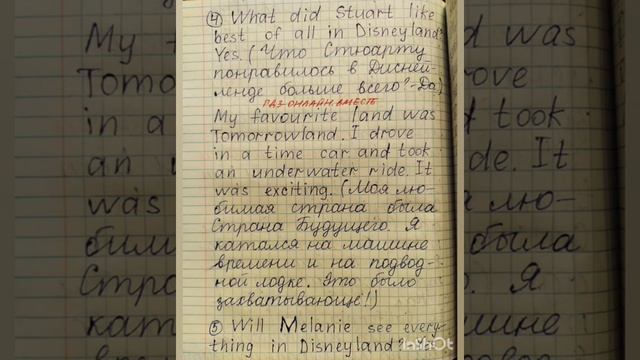 ④ What did Stuart like
best of all in Disneyland?
Yes. (Что Стюарту
понравилось в Дисней-
ленде больше всего? - Да)
РАЗ ОНЛАЙН ВМЕСТЕ
My favourite land was
Tomorrowland. I drove
in a time car and took
an underwater ride. It
was exciting. (Моя лю-
бимая страна была
Страна Будущего. Я
катался на машине
времени и на подвод-
ной лодке. Это было
захватывающе!)
⑤ Will Melanie see every-
thing in Disneyland?
InShOt